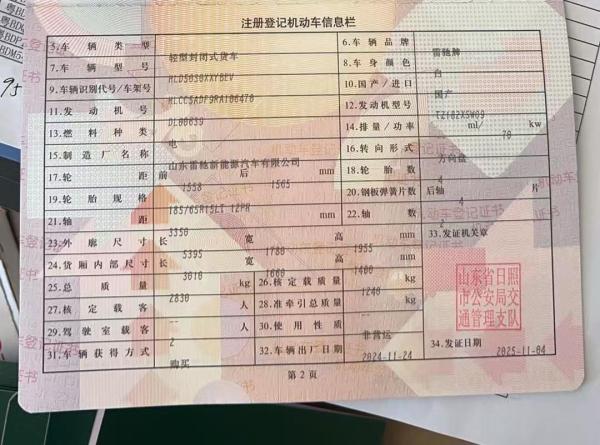 注册登记机动车信息栏
5.车辆类型 轻型封闭式货车 6.车辆品牌 雷驰牌
7.车辆型号 HLD5030XXYBEV 8.车身颜色 白
9.车辆识别代号/车架号 10.国产/进口 国产
11.发动机号 DL00639 12.发动机型号 TZ182XSW09
13.燃料种类 电 14.排量/功率 ml/ 70 kw
15.制造厂名称 山东雷驰新能源汽车有限公司 16.转向形式 方向盘
17.轮距 前 1558 后 1565 mm 18.轮胎数 4
19.轮胎规格 185/65R15LT 12PR 20.钢板弹簧片数 后轴 4 片
21.轴距 3350 mm 22.轴数 2
23.外廓尺寸 长 5395 宽 1780 高 1955 mm 33.发证机关章
24.货厢内部尺寸 长 3010 宽 1600 高 1400 mm
25.总质量 2830 kg 26.核定载质量 1240 kg
山东省日照
市公安局交
通管理支队
27.核定载客 -- 人 28.准牵引总质量 -- kg
29.驾驶室载客 2 人 30.使用性质 非营运
31.车辆获得方式 购买 32.车辆出厂日期 2024-11-24 34.发证日期 2025-11-04
第2页
机动车登记证书
粤BD
95